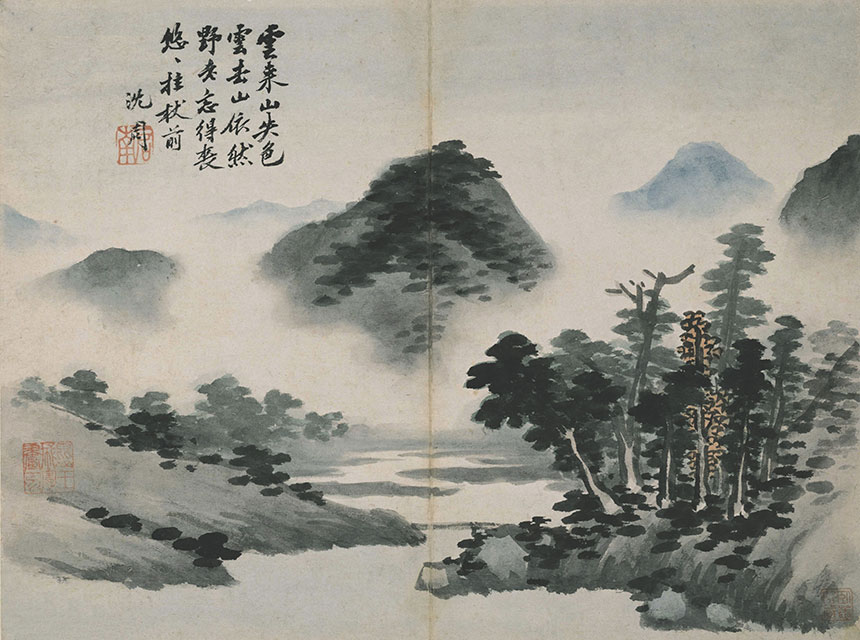 雲来山失色
雲去山依然
野老忘得喪
悠、拄杖前
沈周